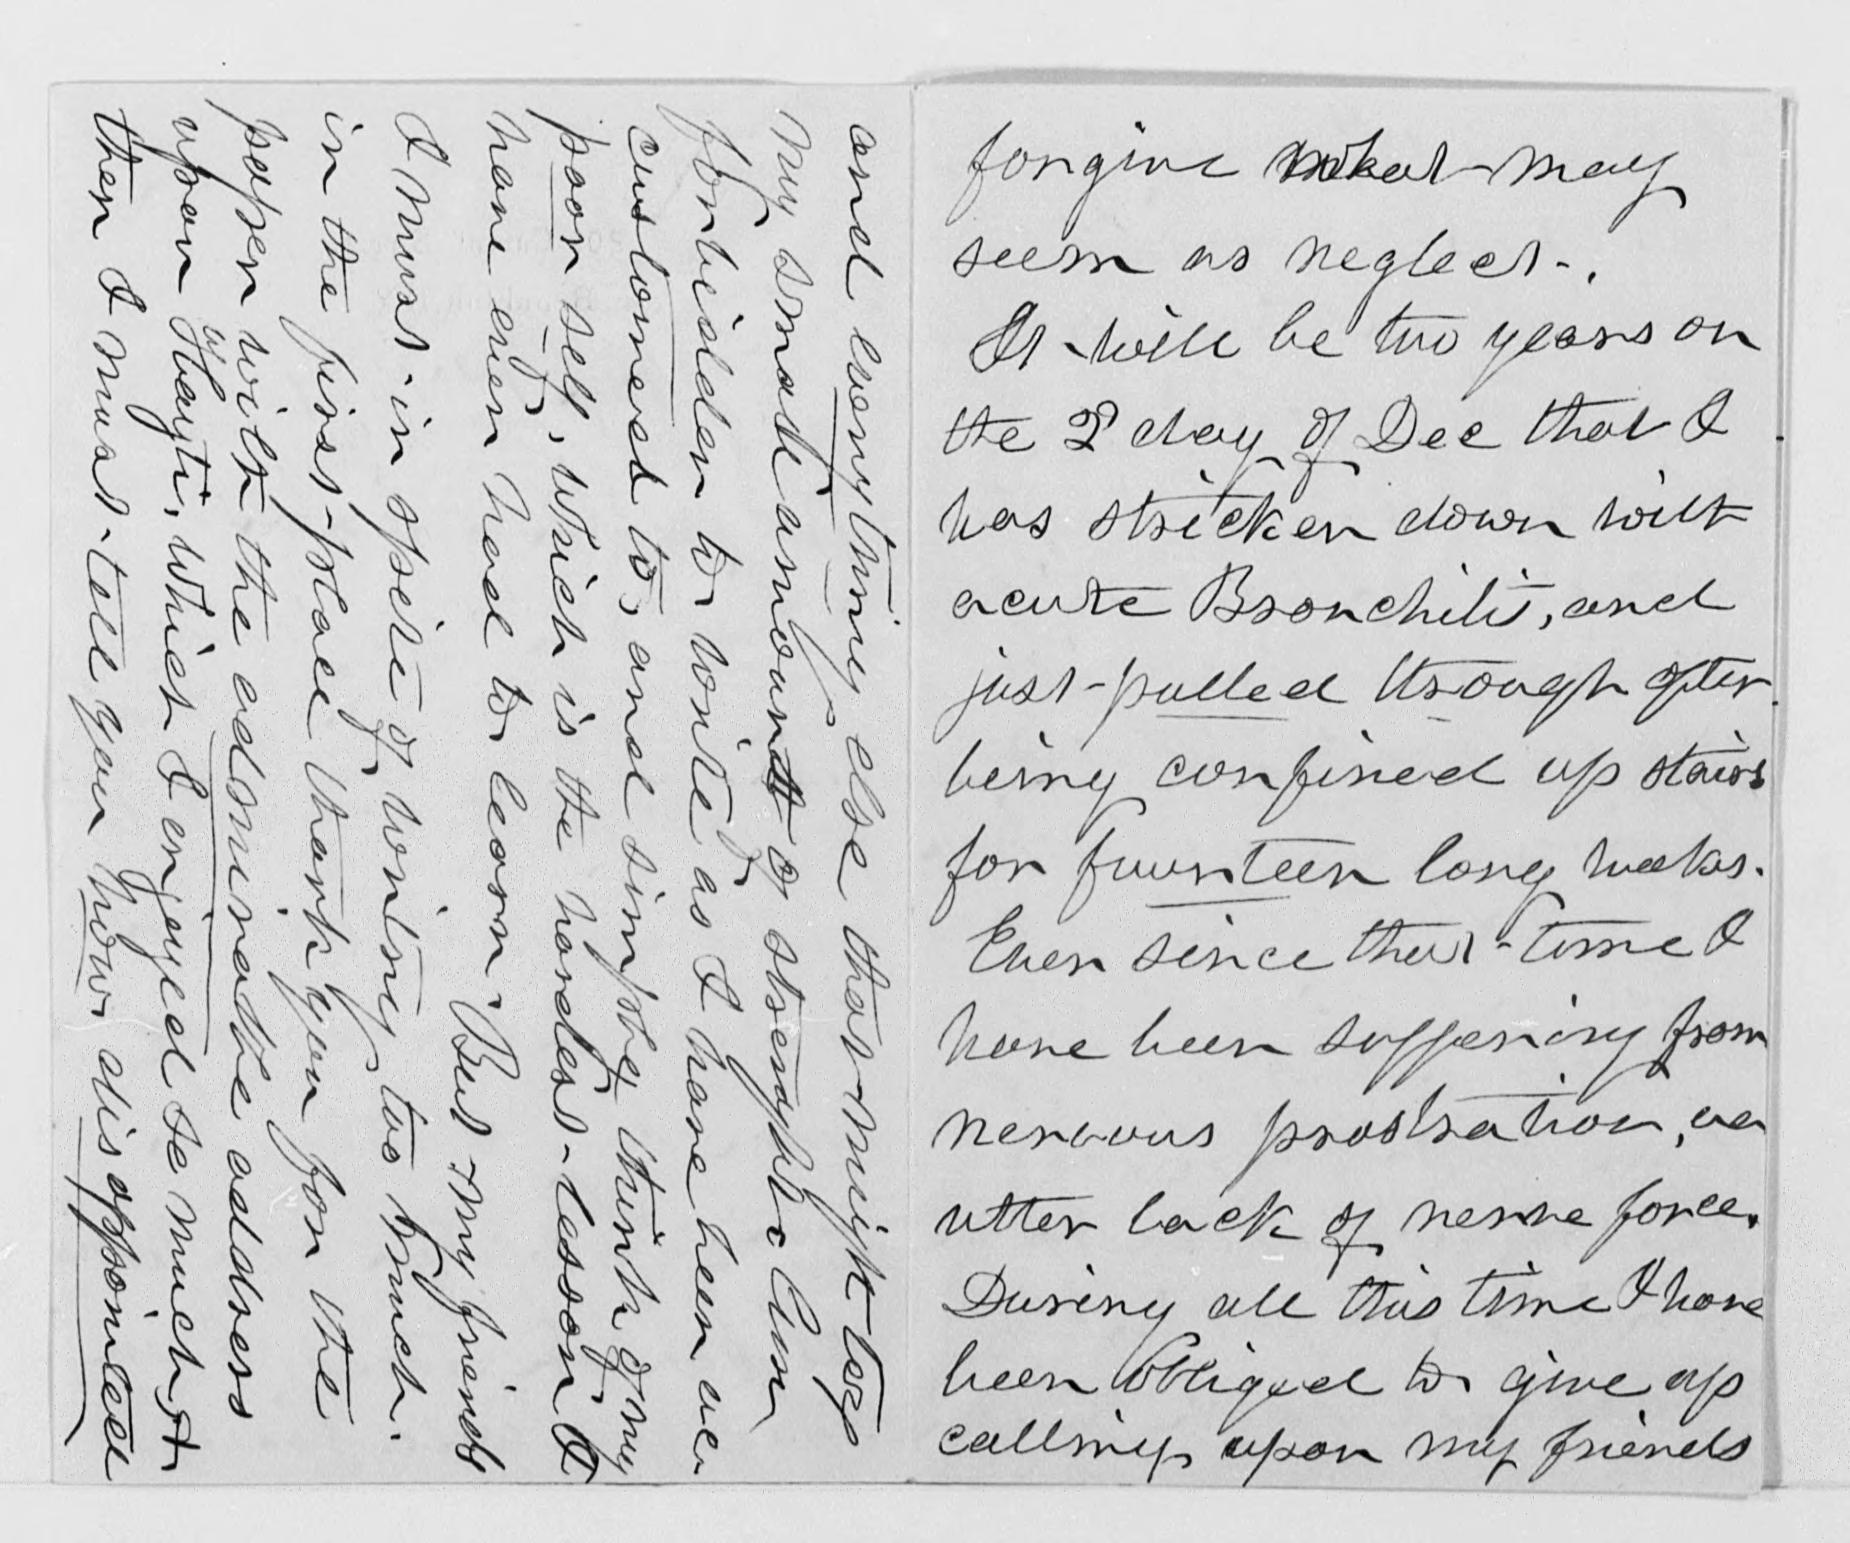 forgive what may
seem as neglect.
It will be two years on
the 2d day of Dec that I
was stricken down with
acute Bronchitis, and
just pulled through after
being confined up stairs
for fourteen long weeks.
Ever since that time I
have been suffering from
nervous prostration, an
utter lack of nerve force.
During all this time I have
been obliged to give up
calling upon my friends
and everything else that might tax
my small amount of strenght. Am
forbidden to write as I have been ac
customed to, and simply think of my
poor self, which is the hardest lesson I
have ever had to learn. But my friend
I must in spite of writing too much.
in the first place thank you for the
paper with the adominable address
upon Hayti, which I enjoyed so much, &
then I must tell you how disappointed